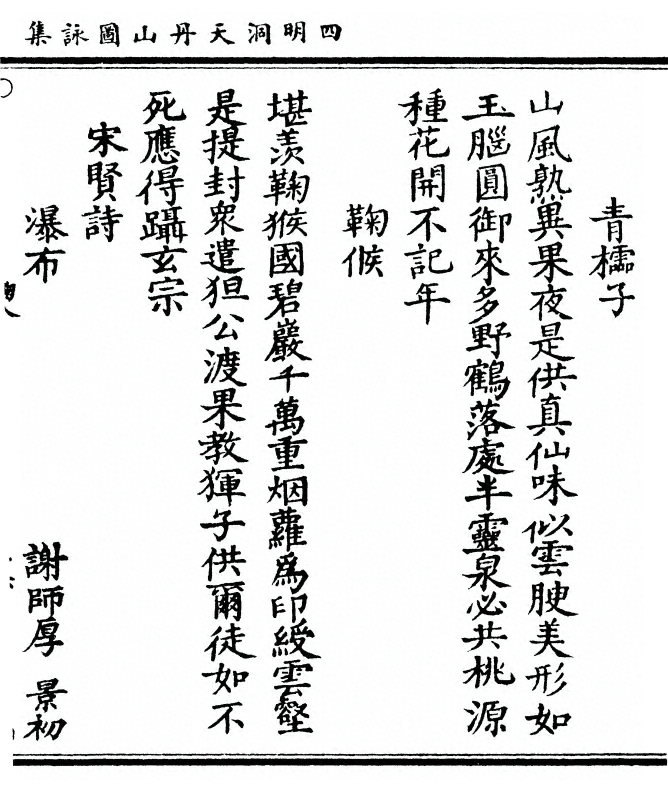 四明洞天丹山圖詠集
青檽子
山風熟異果夜是供真仙味似雲腴美形如
玉腦圓御來多野鶴落處半靈泉必共桃源
種花開不記年
鞠候
堪羨鞠猴國碧巖千萬重烟蘿為印綬雲壑
是提封衆遣狚公渡果教𤟤子供爾徒如不
死應得躡玄宗
宋賢詩
瀑布 謝師厚 景初